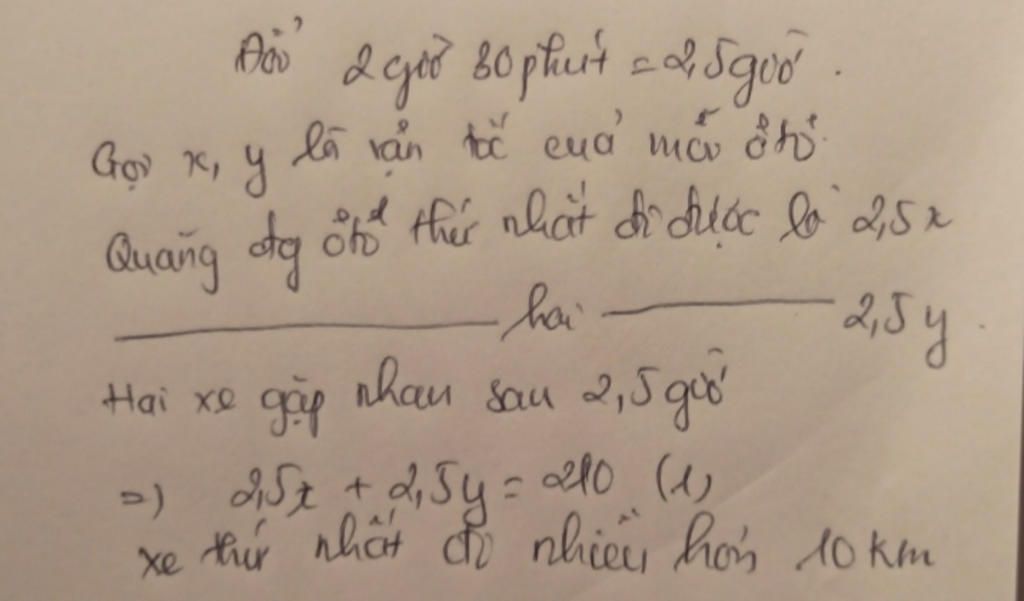 Đổi 2 giờ 30 phút = 2,5 giờ.
Gọi x, y là vận tốc của mỗi ôtô.
Quãng đg ôtô thứ nhất đi được là 2,5x
——— hai ——— 2,5y.
Hai xe gặp nhau sau 2,5 giờ
=) 2,5x + 2,5y = 210 (1)
xe thứ nhất đi nhiều hơn 10 km